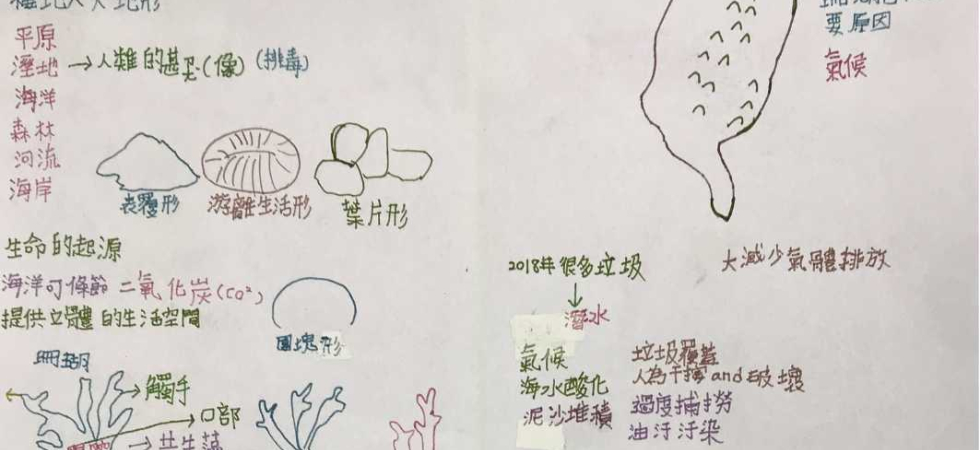 平原
溼地→人類的甚至(像)(排毒)
海洋
森林
河流
海岸
表覆形 游離生活形 葉片形
生命的起源
海洋可條節二氧化炭(CO²)
提供立體的生活空間
團塊形
珊瑚
觸手
口部
共生藻
要原因
氣候
大減少氣體排放
2018年很多垃圾
潛水
氣候
海水酸化
泥沙堆積
垃圾覆蓋
人為干擾and破壞
過度捕撈
油汙汙染